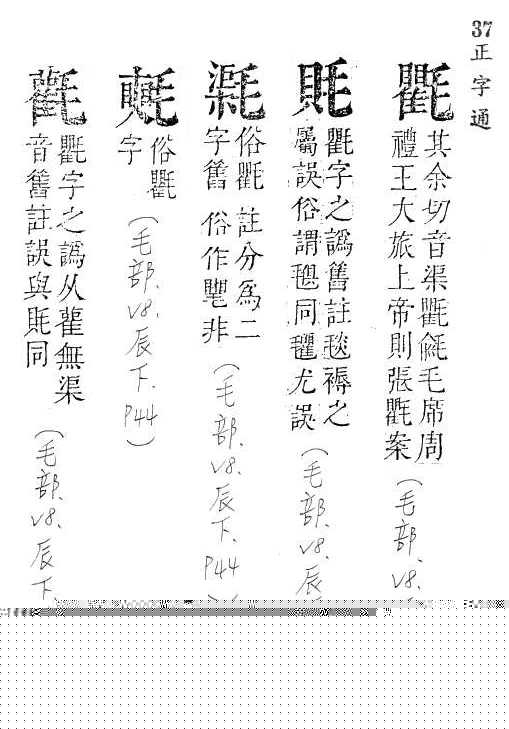 37正字通
氍
其余切音渠氍毹毛席周
禮王大旅上帝則張氍案
(毛部、V8、
氍字之譌舊註毯褥之
屬誤俗謂同氍尤誤
(毛部、V8、辰
俗氍 註分為二
字舊 俗作非
(毛部、V8、辰下、P44
俗氍
字
(毛部、V8、辰下、P44)
氍字之譌从雚無渠
音舊註誤與同
(毛部、V8、辰下